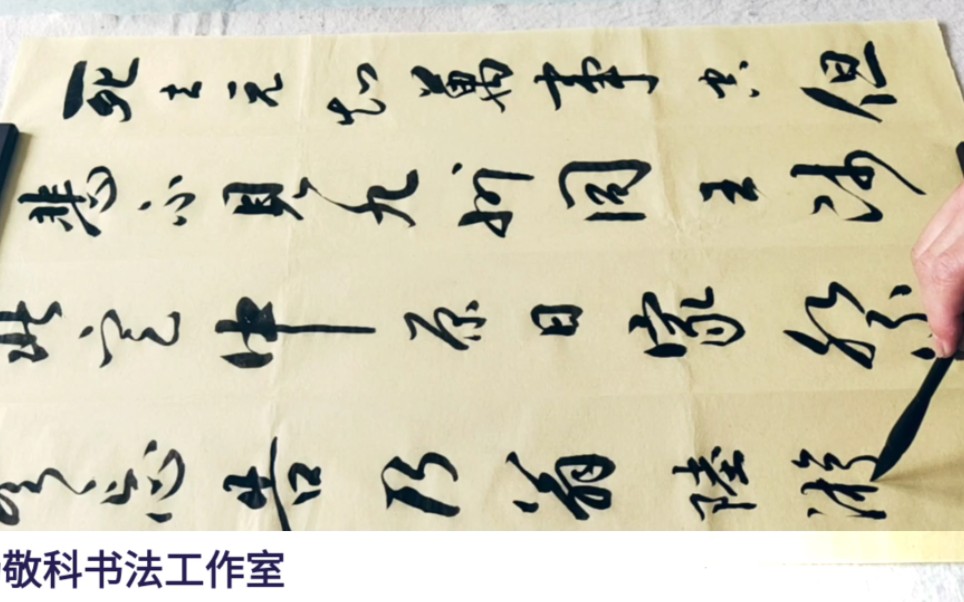 死去元知萬事空但
悲不見九州同王師
北定中原日家祭
無忘告乃翁陸游
敬科书法工作室